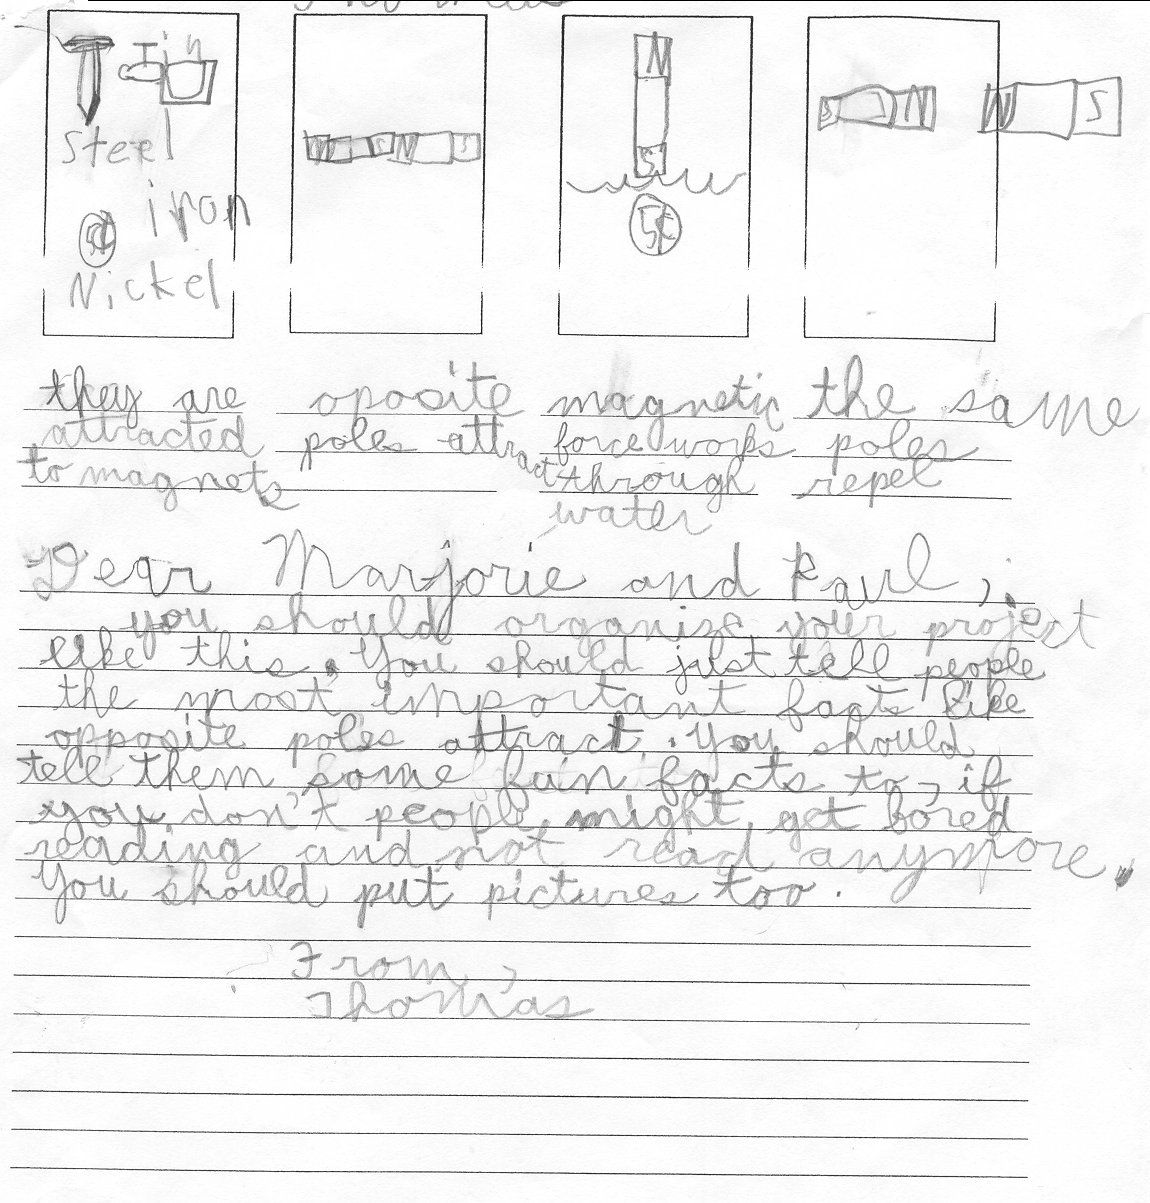 Tin
Steel
iron
5¢
Nickel
N S N S
N
S
5¢
S N N S
they are
attracted
to magnets
oposite
poles attract
magnetic
force works
through
water
the same
poles
repel
Dear Marjorie and Paul,
you should organize your project
like this. You should just tell people
the most important facts like
opposite poles attract. You should
tell them some fun facts to, if
you don't people might get bored
reading and not read anymore.
You should put pictures too.
From,
Thomas